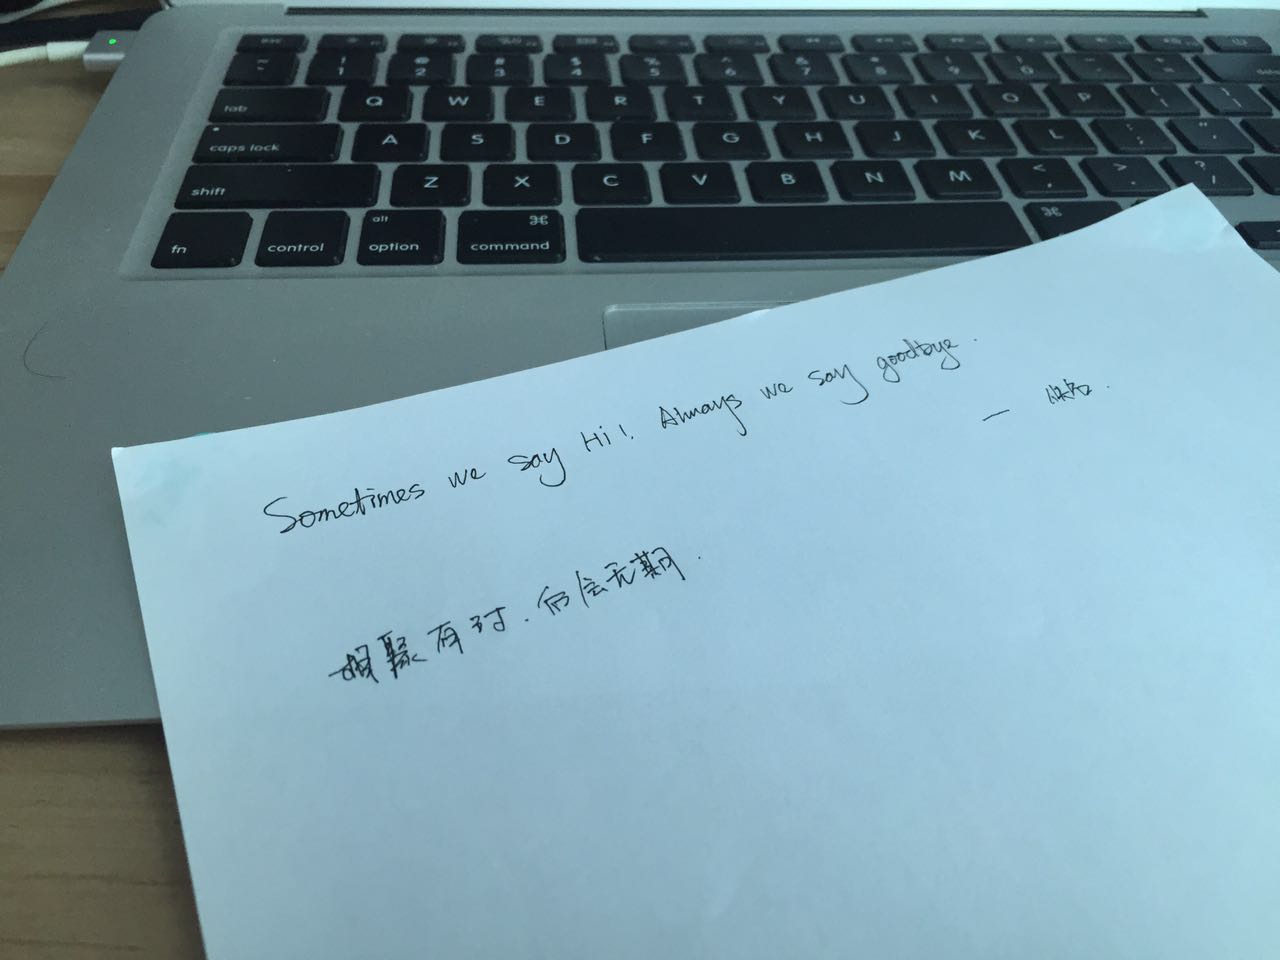 ~ ! 1 @ 2 # 3 $ 4 % 5 ^ 6 & 7 * 8 ( 9 ) 0
tab Q W E R T Y U I O P { [ } ]
caps lock A S D F G H J K L : ; " '
shift Z X C V B N M < , > . ? /
fn control alt option ⌘ command ⌘
Sometimes we say Hi! Always we say goodbye.
—
相聚有时.后会无期.